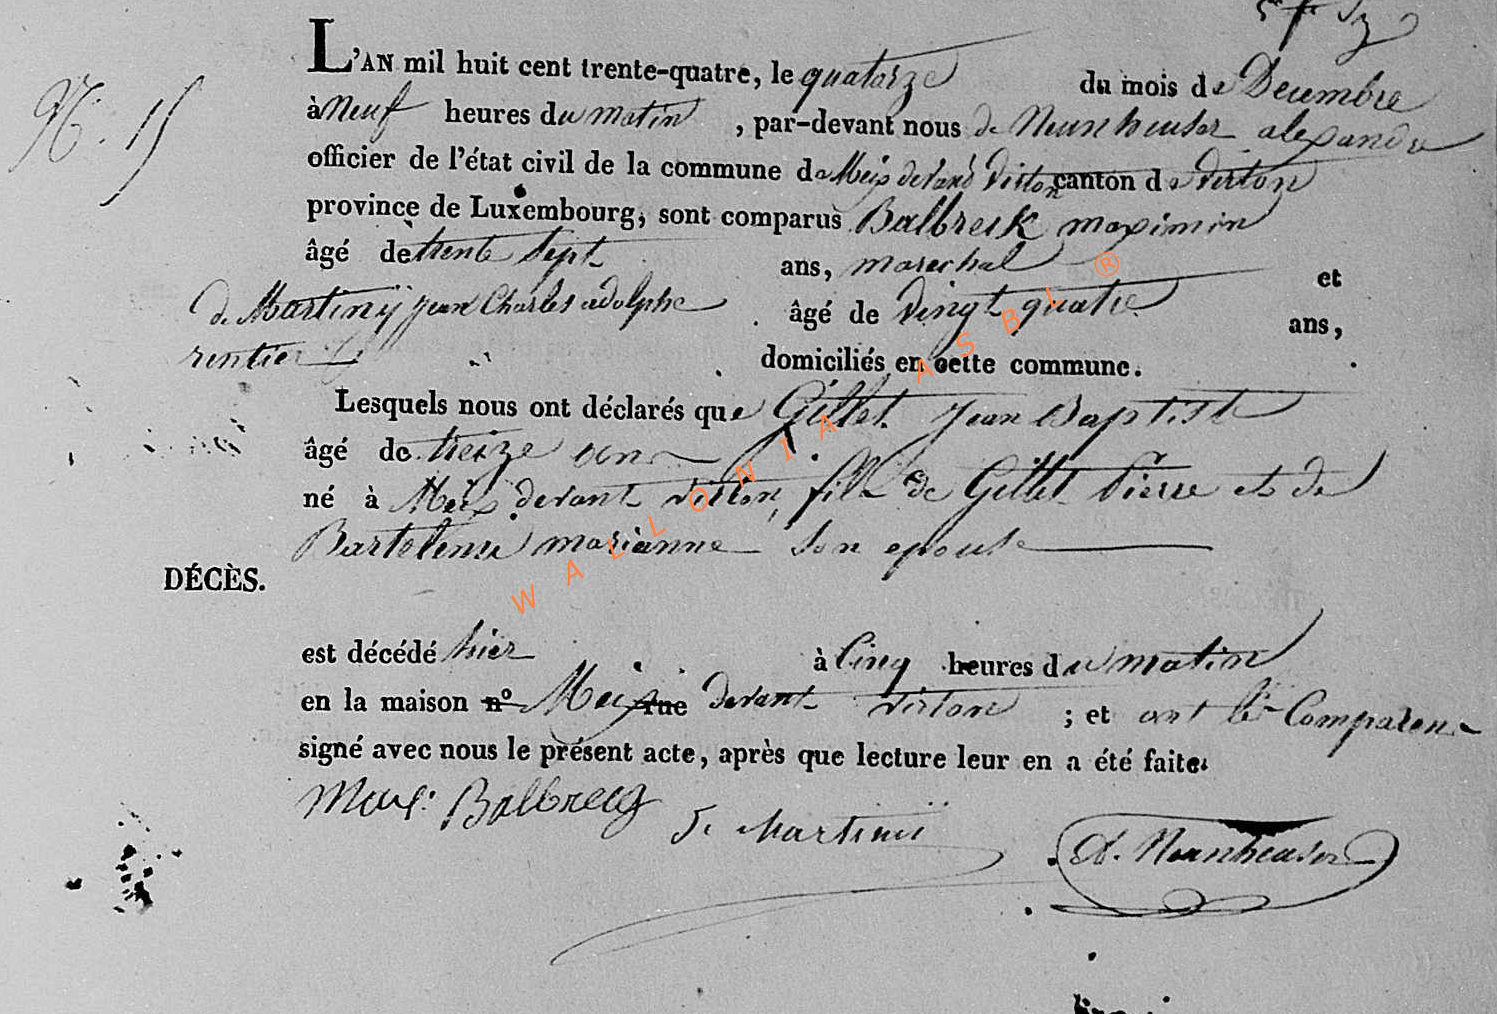 N.° 15
L'AN mil huit cent trente-quatre, le quatorze du mois de Decembre
à Neuf heures du matin, par-devant nous de Neunheuser alexandre
officier de l'état civil de la commune de Meix devant Virton canton de Virton
province de Luxembourg, sont comparus Balbreik maximin
âgé de trente sept ans, marechal et
de Martinÿ jean Charles adolphe âgé de vingt quatre ans,
rentier domiciliés en cette commune.
Lesquels nous ont déclarés que Gillet jean Baptist
âgé de treize ans
né à Meix devant virton, fils de Gillet Pierre et de
Bartelemi marianne son epouse
DÉCÈS.
est décédé hier à Cinq heures du matin
en la maison n° Meix rue devant virton ; et ont les Comparens
signé avec nous le présent acte, après que lecture leur en a été faite.
Max: Balbrecq de Martinÿ A. Neunheuser
WALLONIA ASBL ®